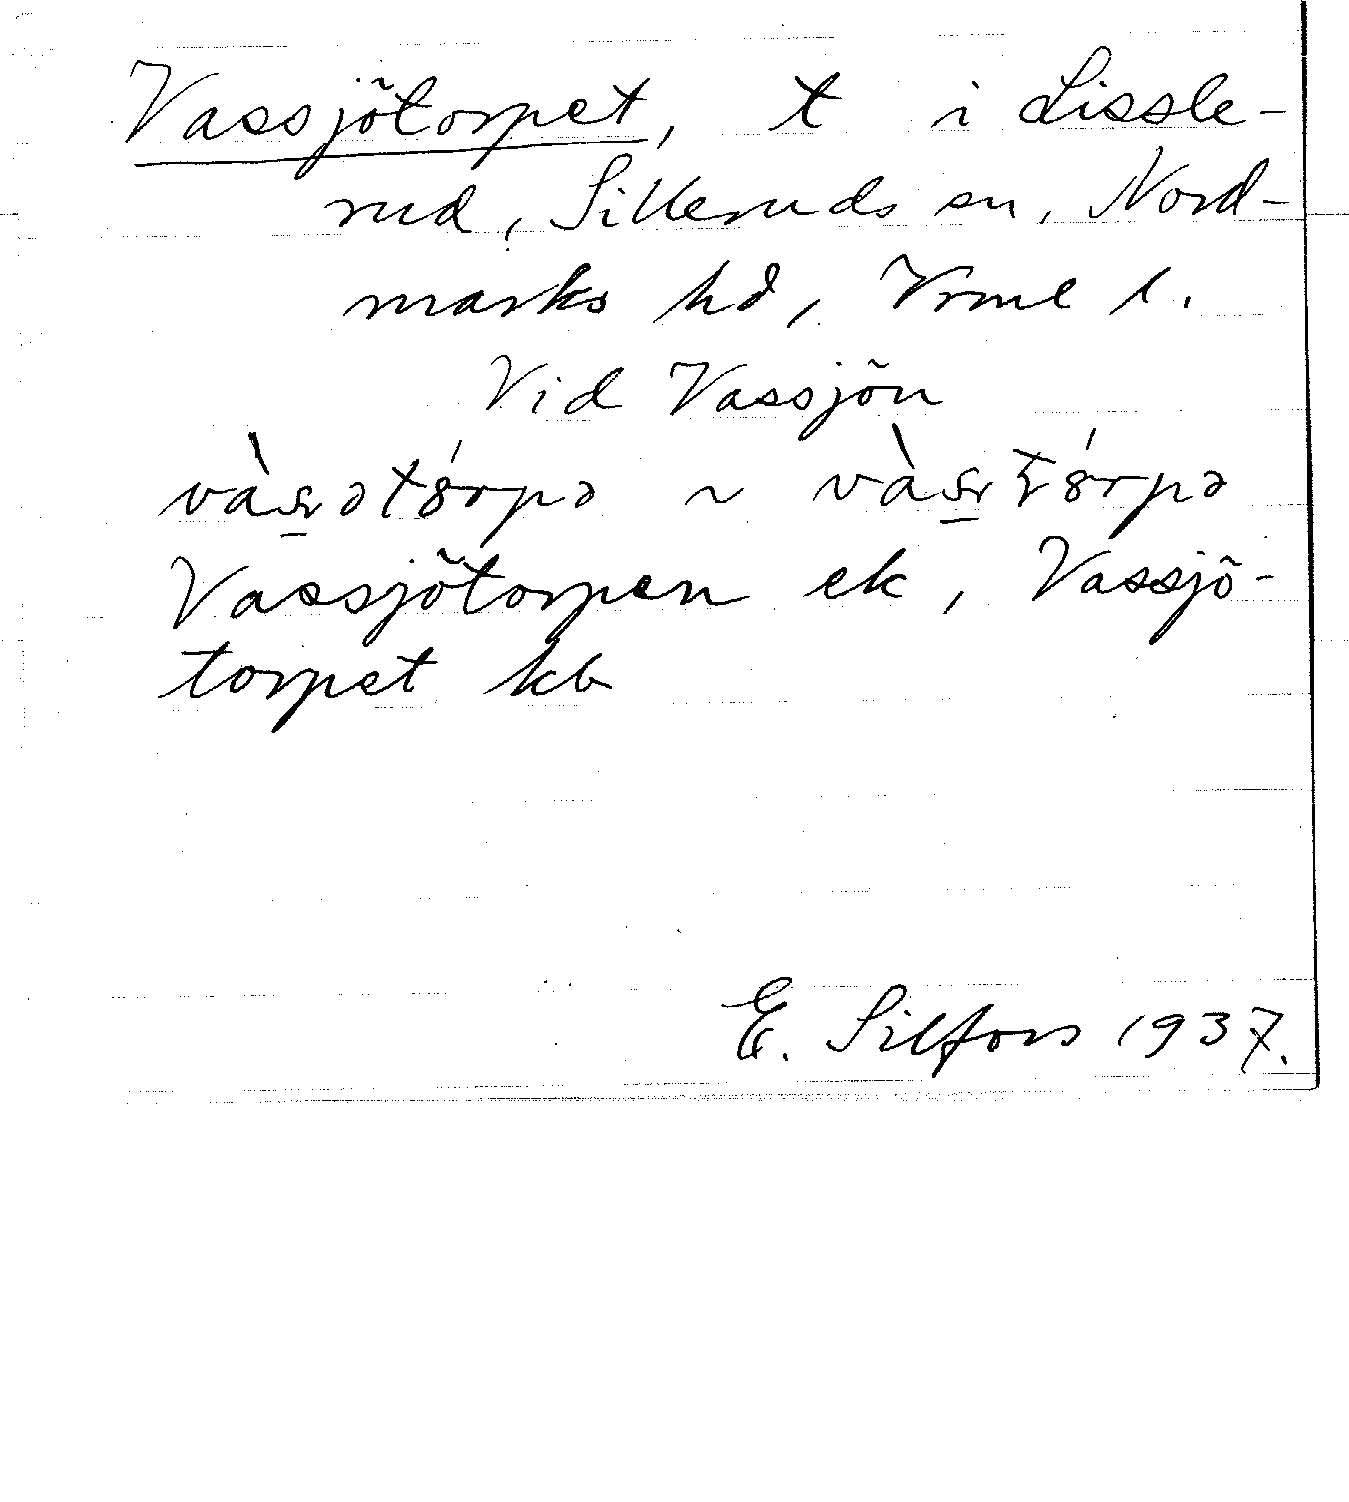 Vassjötorpet, t i Lissle-
rud, Silleruds sn, Nord-
marks hd, Vrml l.
Vid Vassjön
~
Vassjötorpen ek, Vassjö-
torpet kb
E. Silfors 1937.